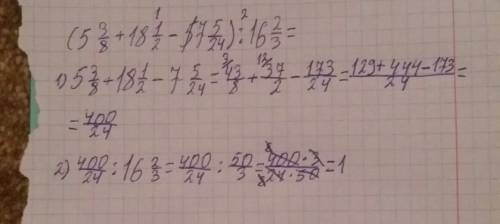 (5 3/8 + 18 1/2 - 7 5/24) : 16 2/3 =
1) 5 3/8 + 18 1/2 - 7 5/24 = 43/8 + 37/2 - 173/24 = (129 + 444 - 173)/24 =
= 400/24
2) 400/24 : 16 2/3 = 400/24 : 50/3 = (400 · 3)/(24 · 50) = 1